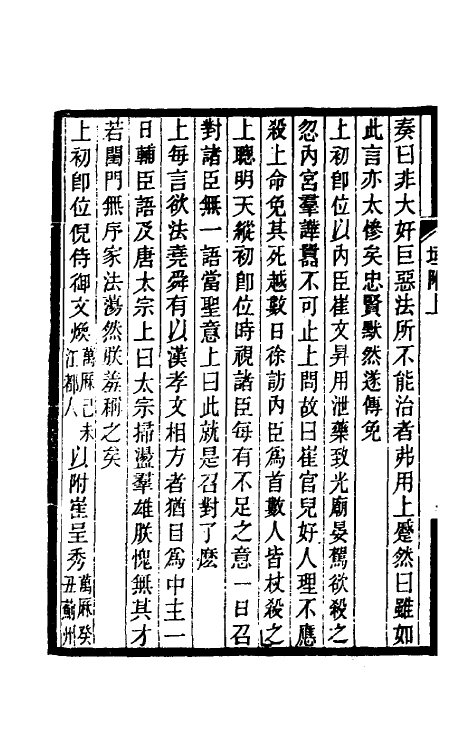 奏曰非大奸巨惡法所不能治者弗用上蹙然曰雖如
此言亦太慘矣忠賢默然遂傳免
上初卽位以內臣崔文昇用泄藥致光廟晏駕欲殺之
忽內宮羣譁囂不可止上問故曰崔官兒好人理不應
殺上命免其死越數日徐訪內臣爲首數人皆杖殺之
上聰明天縱初卽位時視諸臣每有不足之意一日召
對諸臣無一語當聖意上曰此就是召對了麽
上每言欲法堯舜有以漢孝文相方者猶目爲中主一
日輔臣語及唐太宗上曰太宗掃盪羣雄朕愧無其才
若閨門無序家法蕩然朕羞稱之矣
上初卽位倪侍御文煥萬厤己未江都人以附崔呈秀萬厤癸丑薊州
附上